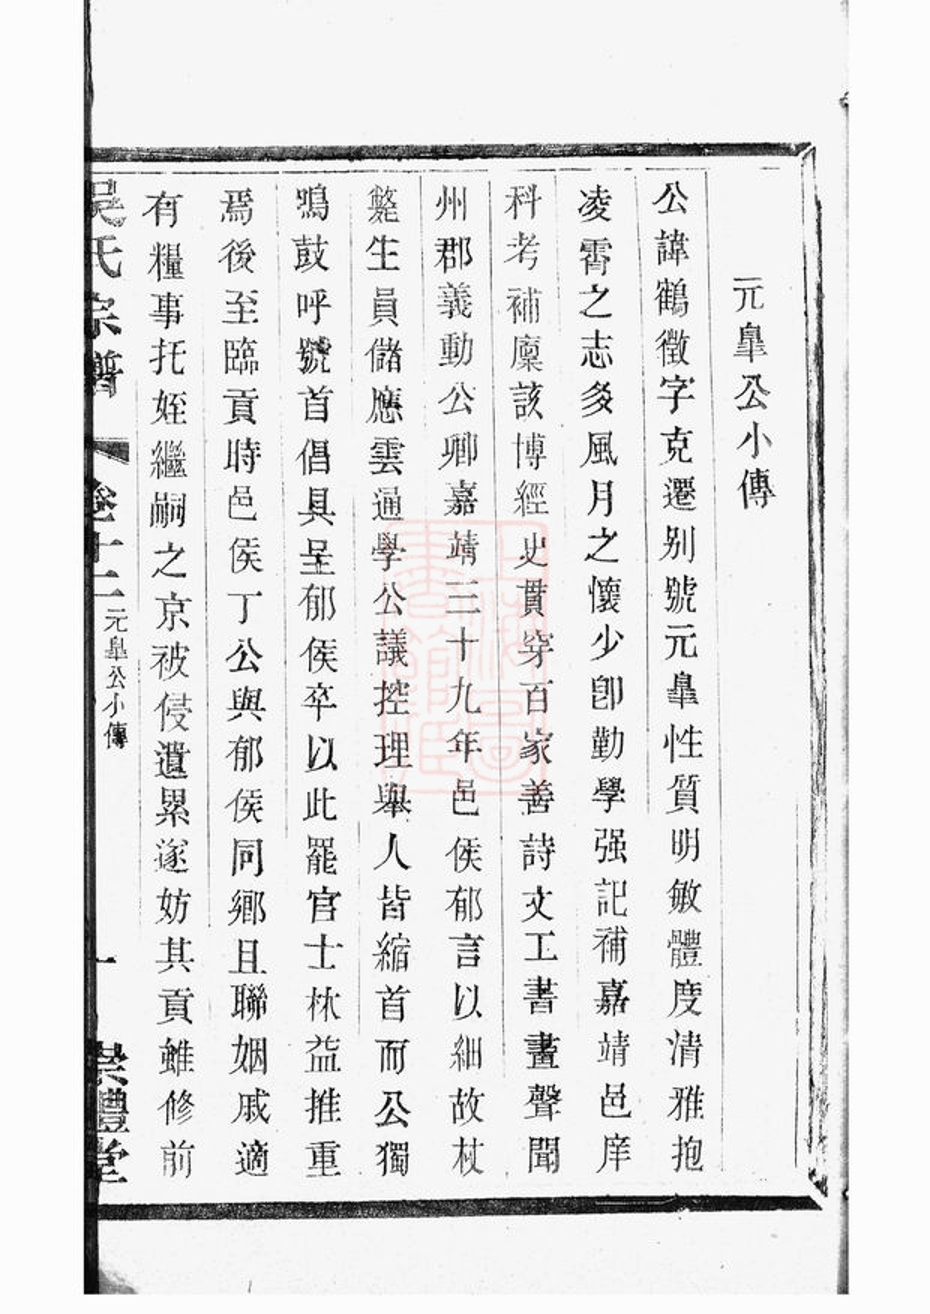 元皐公小傳
公諱鶴徵字克遷别號元皐性質明敏體度清雅抱
凌霄之志多風月之懷少卽勤學强記補嘉靖邑庠
科考補廩該博經史貫穿百家善詩文工書畫聲聞
州郡義動公卿嘉靖三十九年邑侯郁言以細故杖
斃生員儲應雲通學公議控理舉人皆縮首而公獨
鳴鼓呼號首倡具呈郁侯卒以此罷官士林益推重
焉後至臨貢時邑侯丁公與郁侯同鄉且聯姻戚適
有糧事托姪繼嗣之京被侵遺累遂妨其貢雖修前
吳氏宗譜 卷十二 元皐公小傳 一 崇禮堂
上海圖書館藏